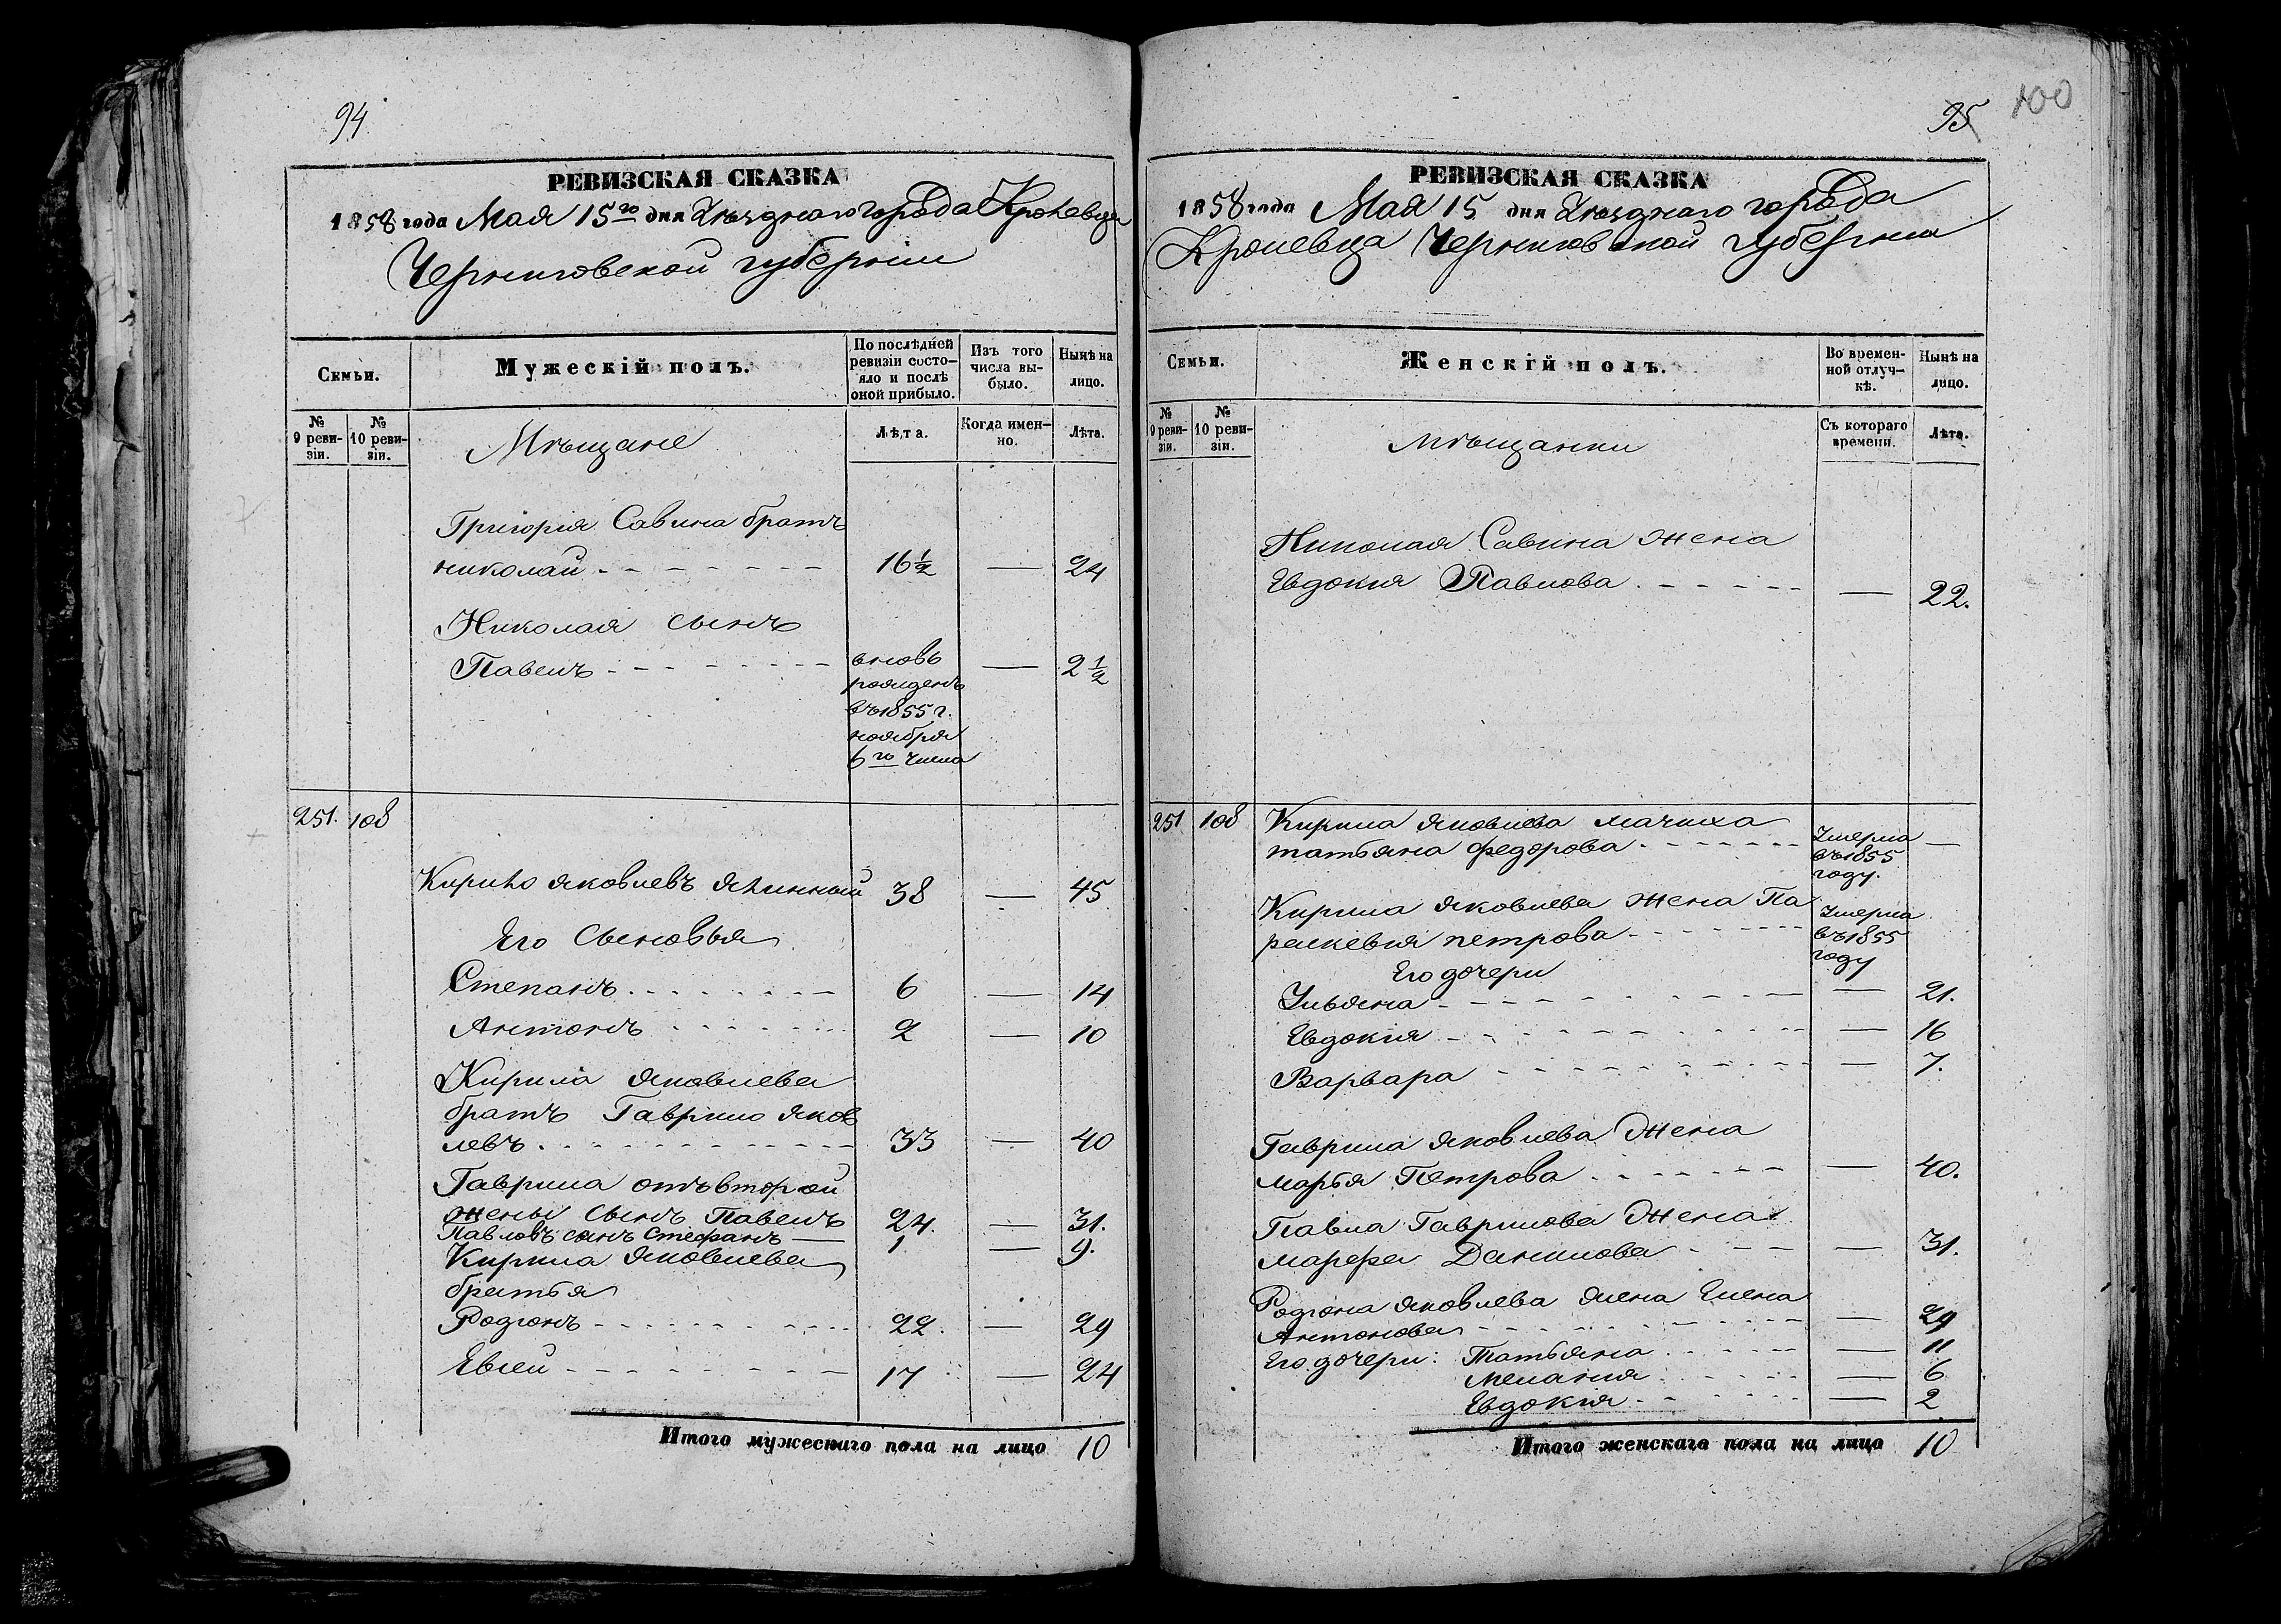 94
РЕВИЗСКАЯ СКАЗКА
1858 года Мая 15го дня Уѣзднаго города Кролевца
Черниговской губерніи
Семьи.
Мужескій полъ.
По послѣдней ревизіи состо-
яло и послѣ оной прибыло.
Изъ того числа вы-
было.
Нынѣ на лицо.
№ 9 реви-
зіи.
№ 10 реви-
зіи.
Мѣщане
Лѣта.
Когда имен-
но.
Лѣта.
Григорія Савина братъ
николай 16 1/2 — 24
Николая сынъ
Павелъ — 2 1/2
вновь
рожденъ
въ 1855 г.
ноября
6го числа
251. 108
Кирило Яковлевъ 38 — 45
Его Сыновья
Степанъ 6 — 14
Антонъ 2 — 10
Кирила Яковлева
братъ Гаврило Яков
левъ 33 — 40
Гаврила отъ второй
жены сынъ Павелъ 24. — 31.
Павловъ сынъ Стефанъ — 1 — 9.
Кирила Яковлева
братья
Родіонъ 22. — 29
Евсей 17 — 24
Итого мужескаго пола на лицо 10
95
100
РЕВИЗСКАЯ СКАЗКА
1858 года Мая 15 дня Уѣзднаго города
Кролевца Черниговской губерніи
Семьи.
Женскій полъ.
Во времен-
ной отлуч-
кѣ.
Нынѣ на лицо.
№ 9 реви-
зіи.
№ 10 реви-
зіи.
мѣщанки
Съ котораго времени.
Лѣта.
Николая Савина жена
Евдокія Павлова — 22.
251 108 Кирила Яковлева мачиха
татьяна федорова Умерла —
въ 1855
году.
Кирила Яковлева жена Па
раскевия петрова Умерла
въ 1855
году
Его дочери
Ульяна — 21.
Евдокия — 16
Варвара — 7.
Гаврила Яковлева Жена
марья Петрова — 40.
Павла Гаврилова Жена
марфа Данилова — 31.
Родіона Яковлева жена Елена
Антонова — 29
Его дочери: Татьяна — 11
Мелания — 6
Евдокия — 2
Итого женскаго пола на лицо 10